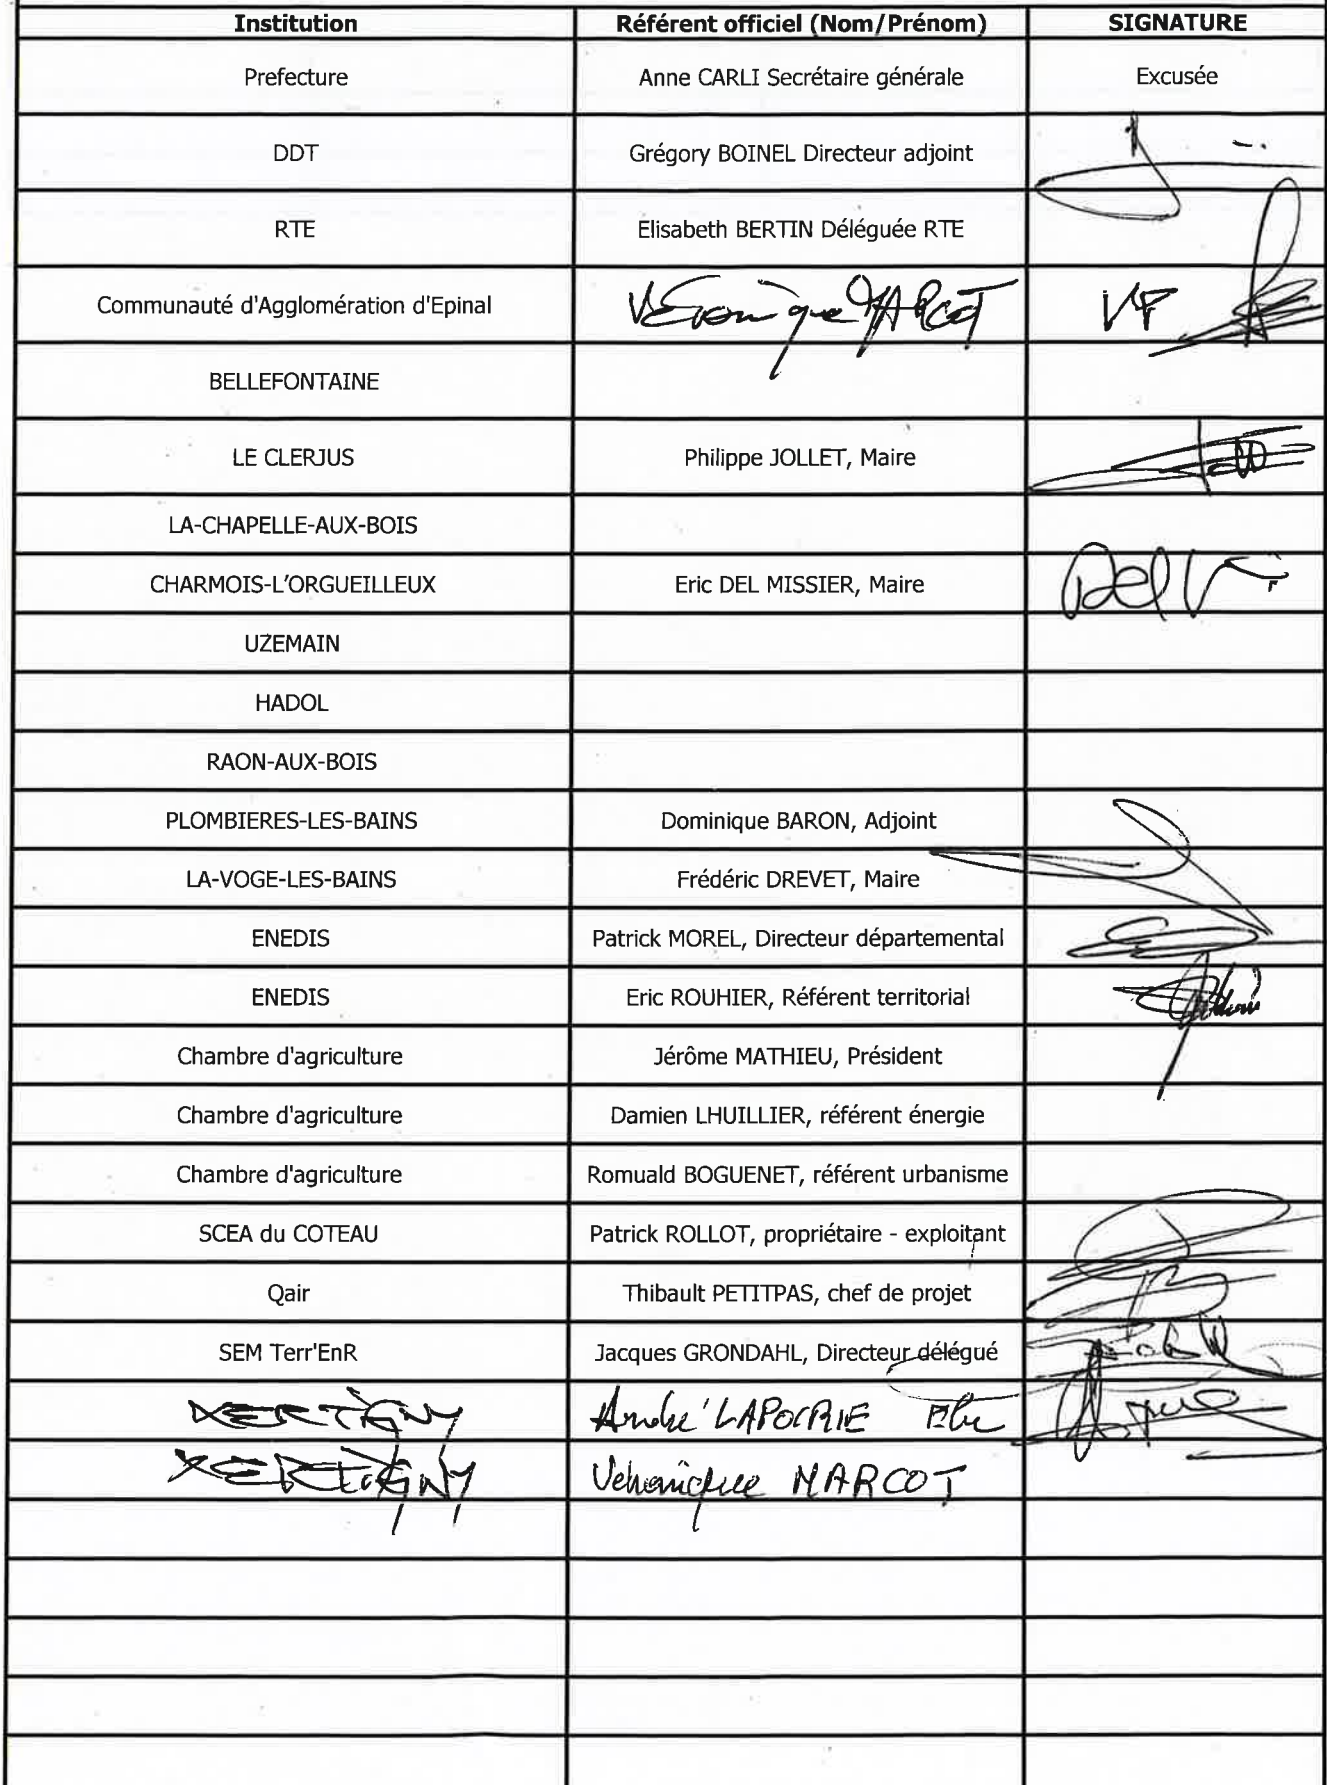 Institution Référent officiel (Nom/Prénom) SIGNATURE
Prefecture Anne CARLI Secrétaire générale Excusée
DDT Grégory BOINEL Directeur adjoint
RTE Elisabeth BERTIN Déléguée RTE
Communauté d'Agglomération d'Epinal Véronique MARCOT
BELLEFONTAINE
LE CLERJUS Philippe JOLLET, Maire
LA-CHAPELLE-AUX-BOIS
CHARMOIS-L'ORGUEILLEUX Eric DEL MISSIER, Maire
UZEMAIN
HADOL
RAON-AUX-BOIS
PLOMBIERES-LES-BAINS Dominique BARON, Adjoint
LA-VOGE-LES-BAINS Frédéric DREVET, Maire
ENEDIS Patrick MOREL, Directeur départemental
ENEDIS Eric ROUHIER, Référent territorial
Chambre d'agriculture Jérôme MATHIEU, Président
Chambre d'agriculture Damien LHUILLIER, référent énergie
Chambre d'agriculture Romuald BOGUENET, référent urbanisme
SCEA du COTEAU Patrick ROLLOT, propriétaire - exploitant
Qair Thibault PETITPAS, chef de projet
SEM Terr'EnR Jacques GRONDAHL, Directeur délégué
XERTIGNY André
XERTIGNY Véronique MARCOT